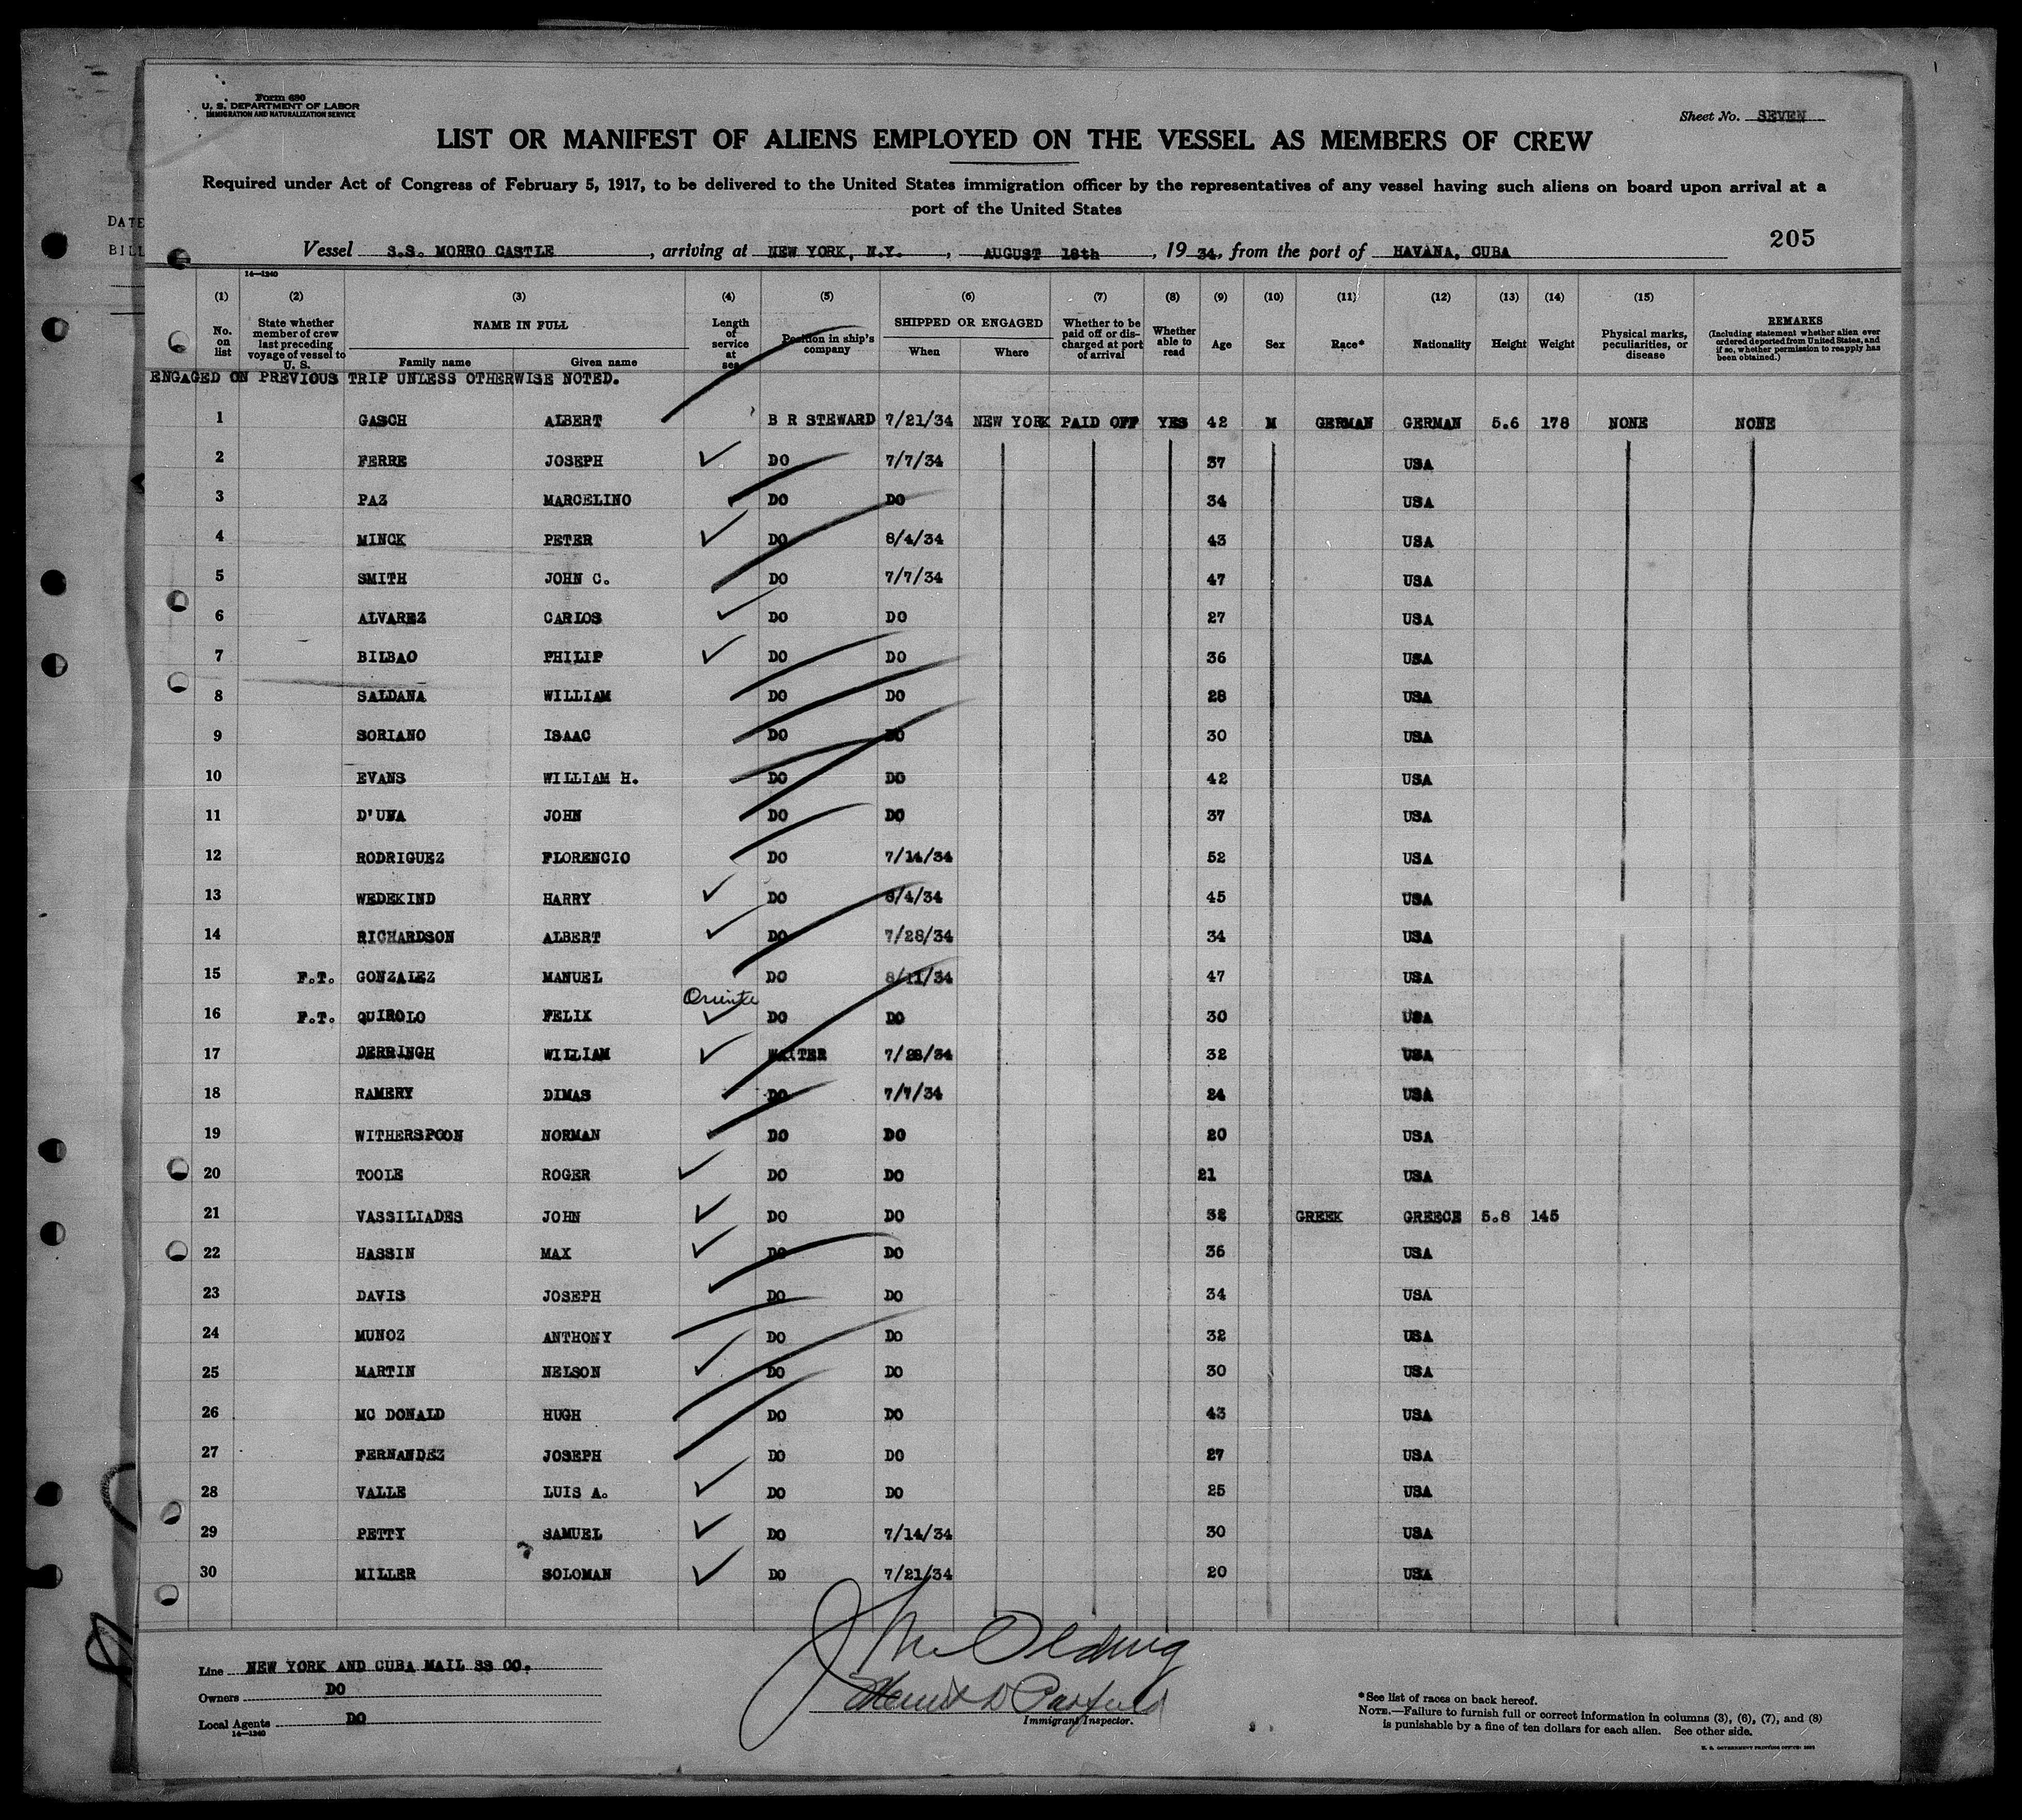 Form 680
U. S. DEPARTMENT OF LABOR
IMMIGRATION AND NATURALIZATION SERVICE
Sheet No. SEVEN
LIST OR MANIFEST OF ALIENS EMPLOYED ON THE VESSEL AS MEMBERS OF CREW
Required under Act of Congress of February 5, 1917, to be delivered to the United States immigration officer by the representatives of any vessel having such aliens on board upon arrival at a
port of the United States
DATE
BILL
205
Vessel S.S. MORRO CASTLE, arriving at NEW YORK, N.Y., AUGUST 18th, 1934, from the port of HAVANA, CUBA
14—1240
(1) (2) (3) (4) (5) (6) (7) (8) (9) (10) (11) (12) (13) (14) (15)
No. on list
State whether member of crew last preceding voyage of vessel to U. S.
NAME IN FULL
Family name Given name
Length of service at sea
Position in ship's company
SHIPPED OR ENGAGED
When Where
Whether to be paid off or discharged at port of arrival
Whether able to read
Age Sex Race* Nationality Height Weight
Physical marks, peculiarities, or disease
REMARKS
(Including statement whether alien ever ordered deported from United States, and if so, whether permission to reapply has been obtained.)
ENGAGED ON PREVIOUS TRIP UNLESS OTHERWISE NOTED.
1 GASCH ALBERT B R STEWARD 7/21/34 NEW YORK PAID OFF YES 42 M GERMAN GERMAN 5.6 178 NONE NONE
2 FERRE JOSEPH DO 7/7/34 37 USA
3 PAZ MARCELINO DO DO 34 USA
4 MINCK PETER DO 8/4/34 43 USA
5 SMITH JOHN C. DO 7/7/34 47 USA
6 ALVAREZ CARLOS DO DO 27 USA
7 BILBAO PHILIP DO DO 36 USA
8 SALDANA WILLIAM DO DO 28 USA
9 SORIANO ISAAC DO DO 30 USA
10 EVANS WILLIAM H. DO DO 42 USA
11 D'UVA JOHN DO DO 37 USA
12 RODRIGUEZ FLORENCIO DO 7/14/34 52 USA
13 WEDEKIND HARRY DO 8/4/34 45 USA
14 RICHARDSON ALBERT DO 7/28/34 34 USA
15 F.T. GONZALEZ MANUEL DO 8/11/34 47 USA
Oriente
16 F.T. QUIROLO FELIX DO DO 30 USA
17 DERRINGH WILLIAM WAITER 7/28/34 32 USA
18 RAMERY DIMAS DO 7/7/34 24 USA
19 WITHERSPOON NORMAN DO DO 20 USA
20 TOOLE ROGER DO DO 21 USA
21 VASSILIADES JOHN DO DO 32 GREEK GREECE 5.8 145
22 HASSIN MAX DO DO 36 USA
23 DAVIS JOSEPH DO DO 34 USA
24 MUNOZ ANTHONY DO DO 32 USA
25 MARTIN NELSON DO DO 30 USA
26 MC DONALD HUGH DO DO 43 USA
27 FERNANDEZ JOSEPH DO DO 27 USA
28 VALLE LUIS A. DO DO 25 USA
29 PETTY SAMUEL DO 7/14/34 30 USA
30 MILLER SOLOMAN DO 7/21/34 20 USA
Line NEW YORK AND CUBA MAIL SS CO.
Owners DO
Local Agents DO
14—1240
Immigrant Inspector.
*See list of races on back hereof.
NOTE.—Failure to furnish full or correct information in columns (3), (6), (7), and (8)
is punishable by a fine of ten dollars for each alien. See other side.